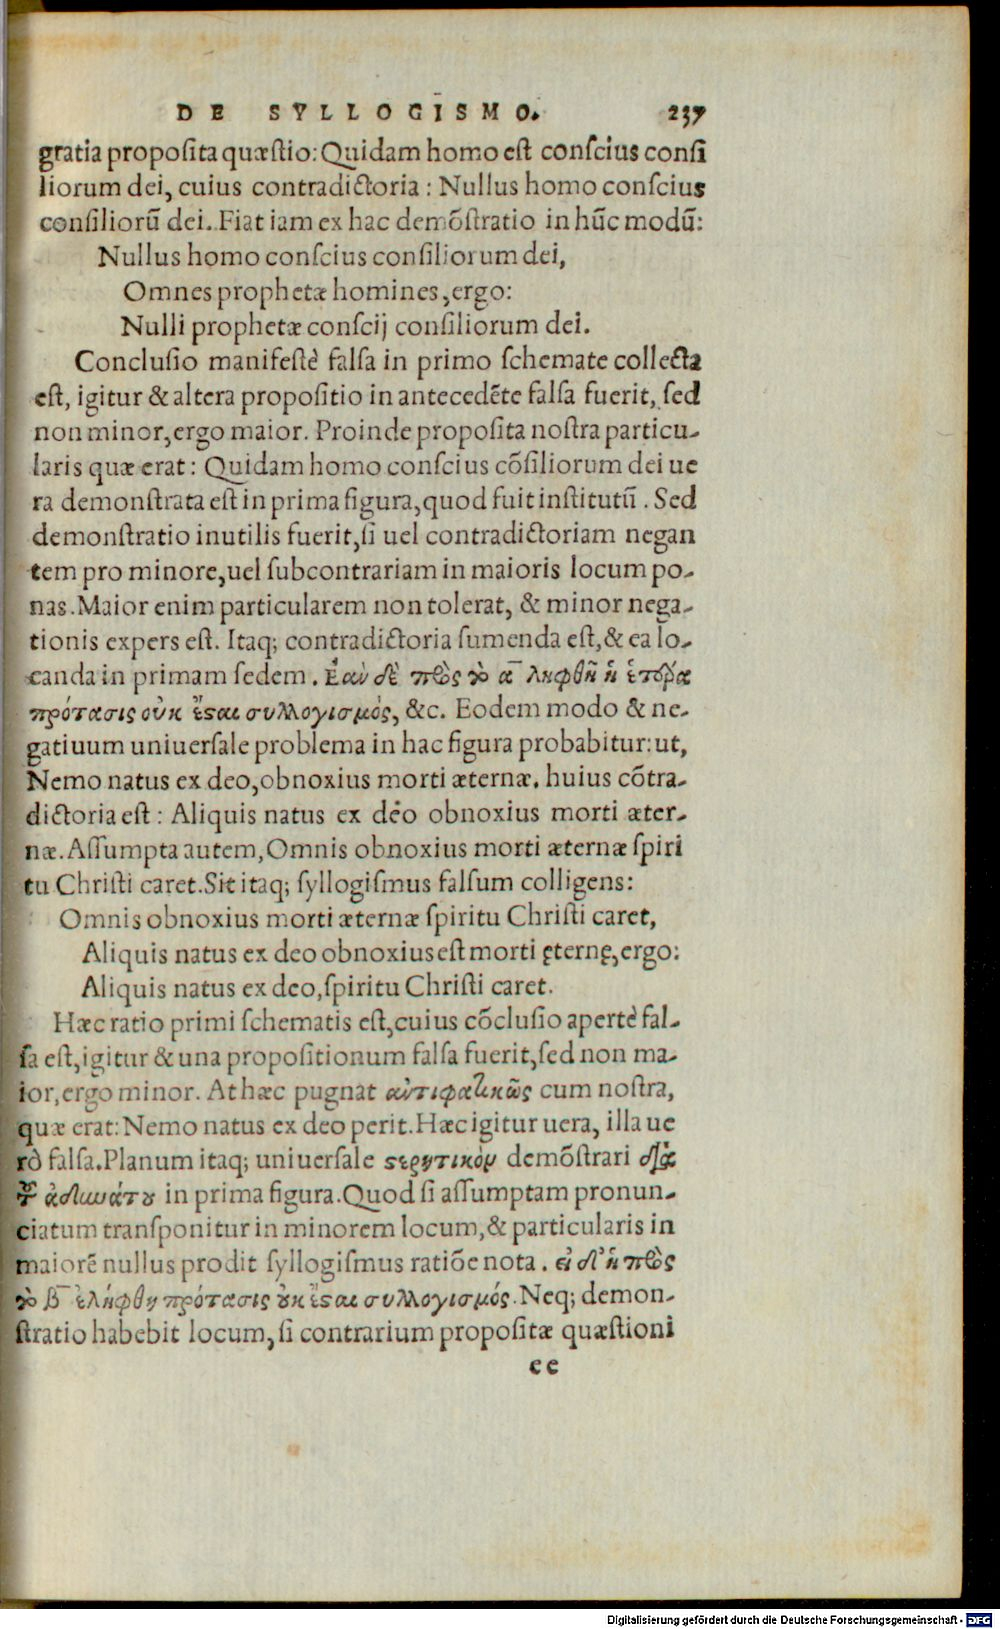 DE SVLLOGISMO. 237
gratia proposita quæstio: Quidam homo est conscius consi
liorum dei, cuius contradictoria : Nullus homo conscius
consiliorũ dei. Fiat iam ex hac demõstratio in hũc modũ:
Nullus homo conscius consiliorum dei,
Omnes prophetæ homines, ergo:
Nulli prophetæ conscij consiliorum dei.
Conclusio manifestè falsa in primo schemate collecta
est, igitur & altera propositio in antecedẽte falsa fuerit, sed
non minor, ergo maior. Proinde proposita nostra particu-
laris quæ erat : Quidam homo conscius cõsiliorum dei ue
ra demonstrata est in prima figura, quod fuit institutũ. Sed
demonstratio inutilis fuerit, si uel contradictoriam negan
tem pro minore, uel subcontrariam in maioris locum po-
nas. Maior enim particularem non tolerat, & minor nega-
tionis expers est. Itaq; contradictoria sumenda est, & ea lo-
canda in primam sedem. Ἐὰν δὲ πρὸς τῷ α ληφθῇ ἡ ἑτέρα
πρότασις οὐκ ἔσται συλλογισμὸς, &c. Eodem modo & ne-
gatiuum uniuersale problema in hac figura probabitur: ut,
Nemo natus ex deo, obnoxius morti æternæ. huius cõtra-
dictoria est : Aliquis natus ex deo obnoxius morti æter-
næ. Assumpta autem, Omnis obnoxius morti æternæ spiri
tu Christi caret. Sit itaq; syllogismus falsum colligens:
Omnis obnoxius morti æternæ spiritu Christi caret,
Aliquis natus ex deo obnoxius est morti ęternę, ergo:
Aliquis natus ex deo, spiritu Christi caret.
Hæc ratio primi schematis est, cuius cõclusio apertè fal-
sa est, igitur & una propositionum falsa fuerit, sed non ma-
ior, ergo minor. At hæc pugnat ἀντιφατικῶς cum nostra,
quæ erat: Nemo natus ex deo perit. Hæc igitur uera, illa ue
rò falsa. Planum itaq; uniuersale στερητικὸν demõstrari διὰ
τοῦ ἀδυνάτου in prima figura. Quod si assumptam pronun-
ciatum transponitur in minorem locum, & particularis in
maiorẽ nullus prodit syllogismus ratiõe nota. εἰ δ' ἡ πρὸς
τῷ β ἐλήφθη πρότασις οὐκ ἔσται συλλογισμός. Neq; demon-
stratio habebit locum, si contrarium propositæ quæstioni
ee
Digitalisierung gefördert durch die Deutsche Forschungsgemeinschaft - DFG